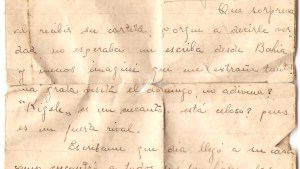 Que sorpresa
al recibir su cartita, porque a decirle ver
dad no esperaba me escriba desde Bahía
y menos imaginé que me extrañe tanto
una gracia el domingo, no adivina?
es un encanto... está celoso? pues
es un fuerte rival.
Escríbame que día llegó a mi
encantó a todos